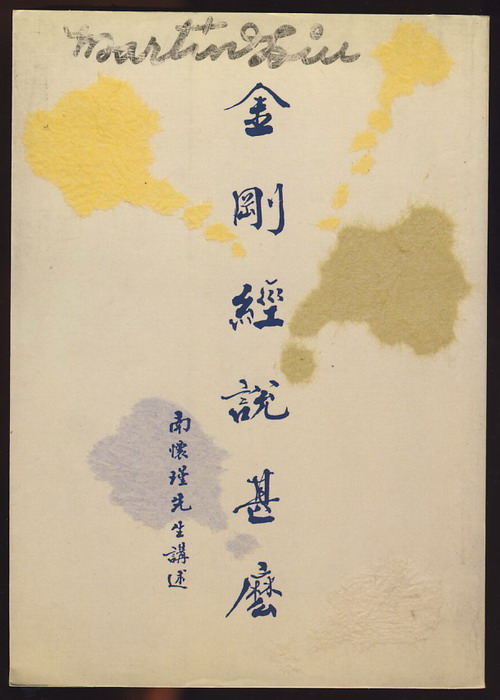 Martin Liu
金剛經說甚麼
南懷瑾先生講述